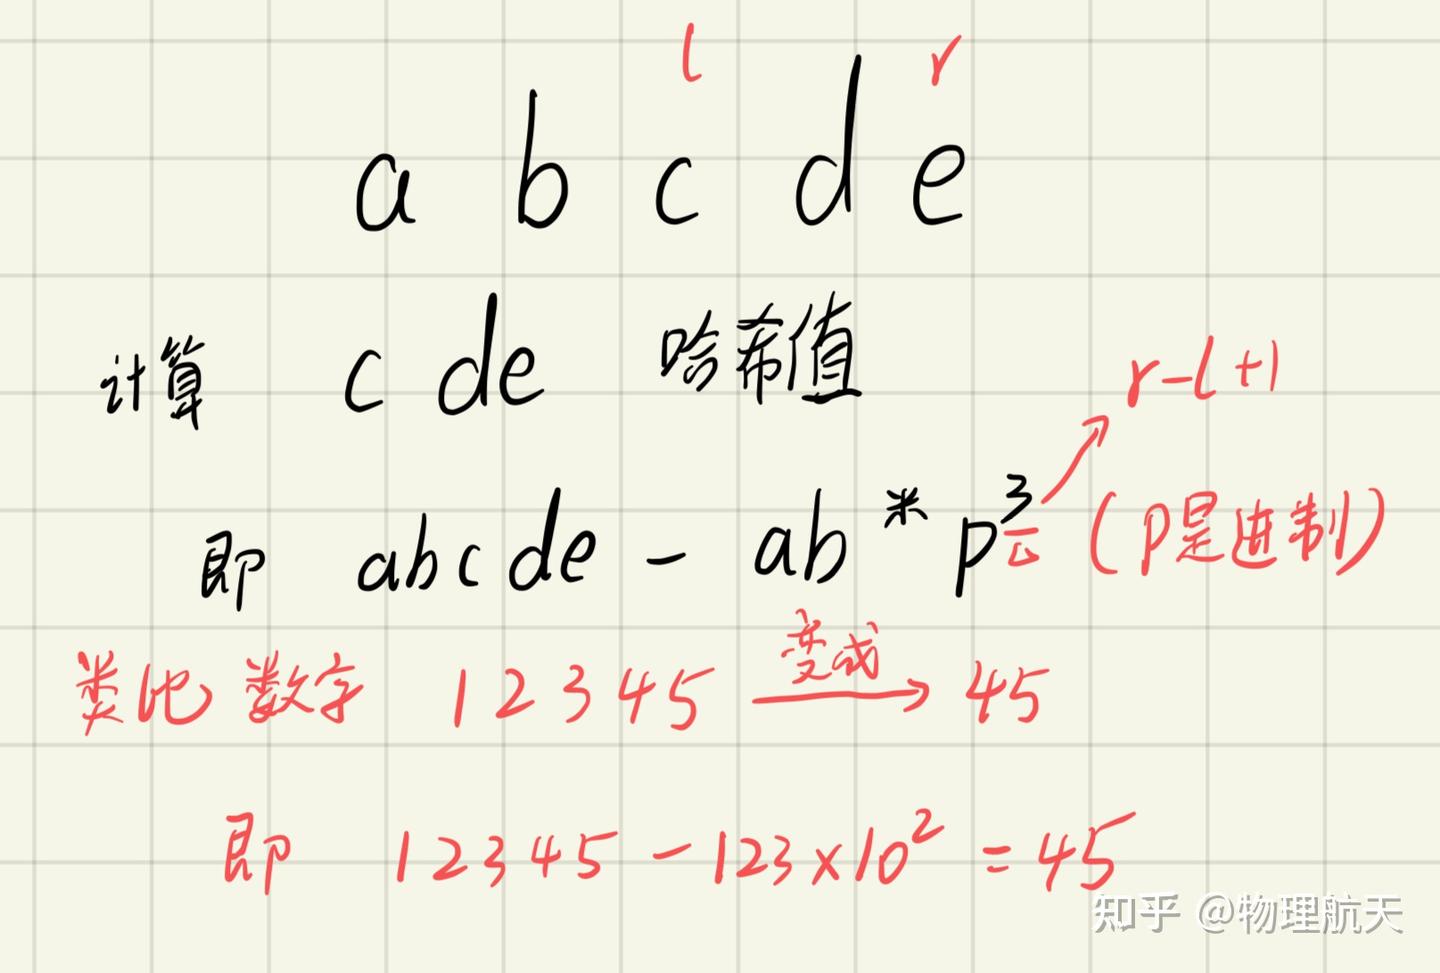 l r
a b c d e
计算 cde 哈希值
r-l+1
即 abcde - ab * p³ (p是进制)
变成
类比 数字 12345 → 45
即 12345 - 123×10² = 45
知乎 @物理航天